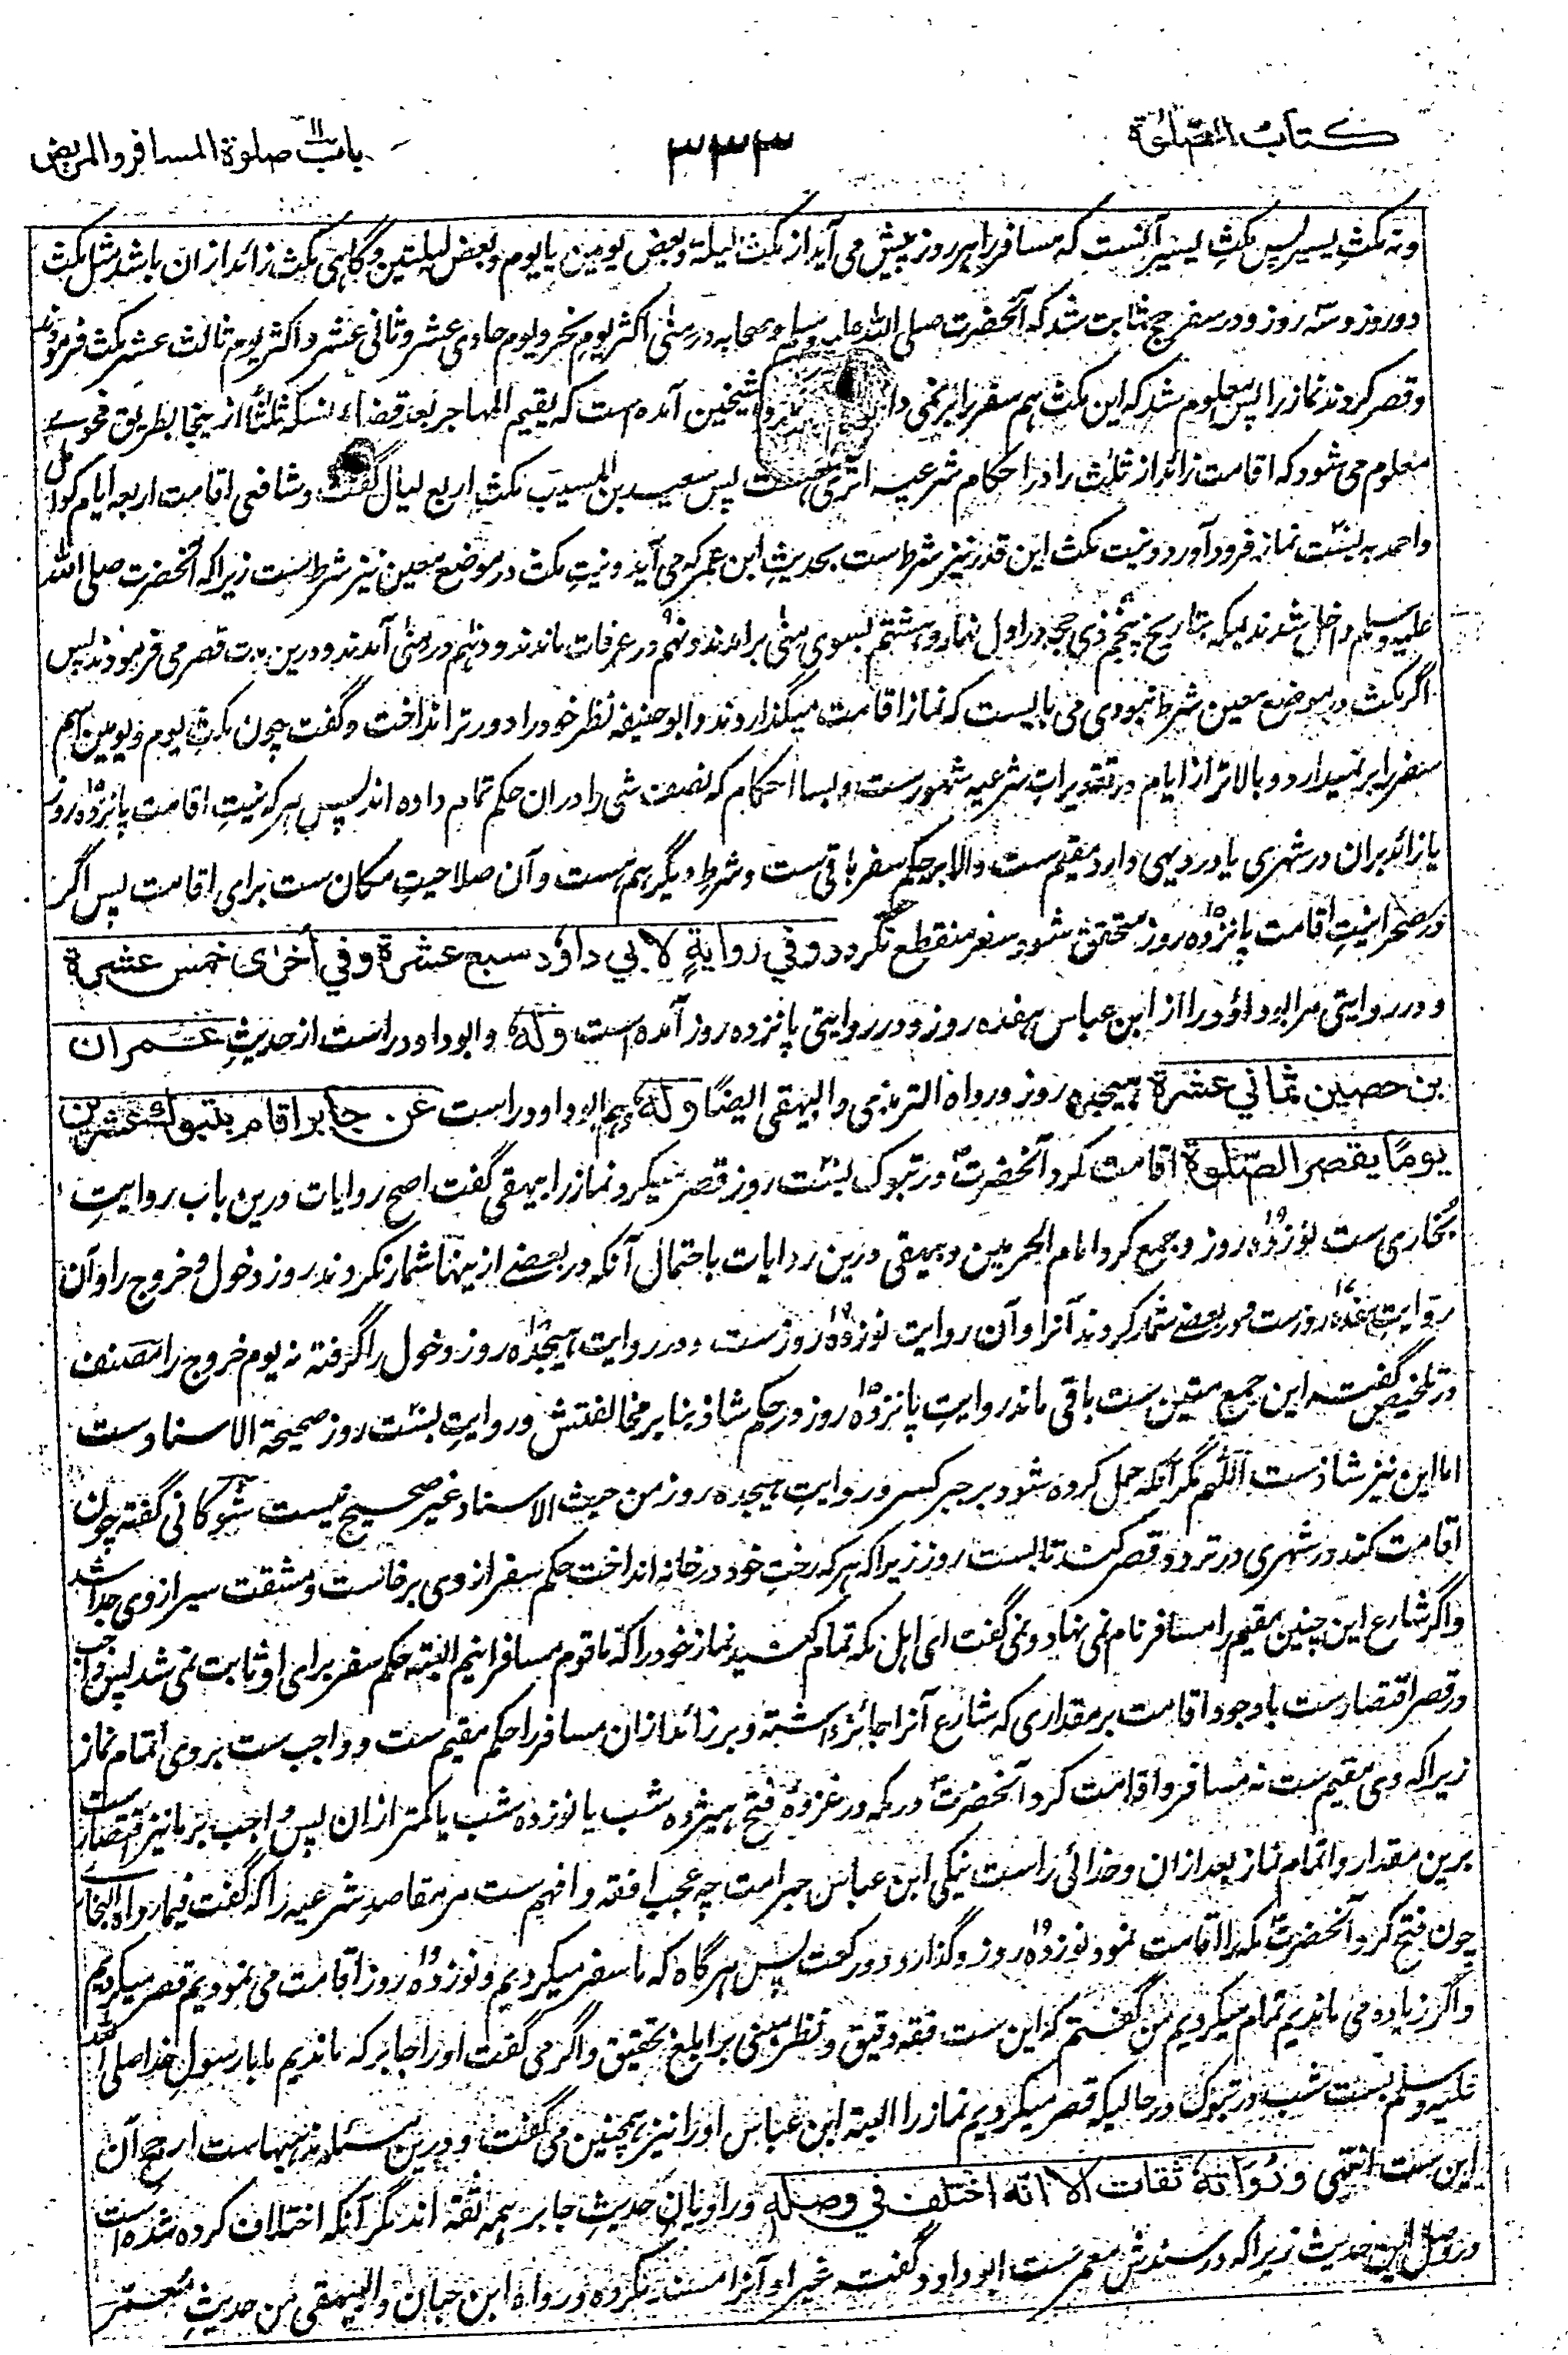 كتاب الصلوة
٣٣٣
باب صلوة المسافر والمريض
ونه مكثِ يسير پس مكثِ يسير آنست كه مسافر را هر روز پيش مى آيد از مكث ليلة وبعض يومين يا يوم وبعض ليلتين وگاهى مكث زائد ازان باشد مثل مكث
دوروز وسه روز ودر سفر حج ثابت شد كه آنحضرت صلى الله عليه وسلم وصحابه در منىٰ اكثر يوم نحر ويوم حادى عشر وثانى عشر واكثر يوم ثالث عشر مكث فرمودند
وقصر كردند نماز را پس معلوم شد كه اين مكث هم سفر را بر نمى دارد شيخين آمده است كه يقيم المهاجر بعد قضاء نسكه ثلثاً از ينجا بطريق فحوى
معلوم مى شود كه اقامت زائد از ثلث را در احكام شرعيه اثرى هست پس سعيد بن المسيب مكث اربع ليال گفت وشافعى اقامت اربعه ايام كوامل
واحمد به بست نماز فرود آورد ونيت مكث اين قدر نيز شرط ست بحديثِ ابن عمر كه مى آيد ونيتِ مكث در موضع معين نيز شرط ست زيراكه آنحضرت صلى الله
عليه وسلم داخل شدند بمكه بتاريخ پنجم ذى حجه در اول نهار وهشتم بسوى منىٰ برآمدند ونهم در عرفات ماندند ودهم در منىٰ آمدند ودرين مدت قصر مى فرمودند پس
اگر مكث در موضع معين شرط نبودى مى بايست كه نماز اقامت ميگذاردند وابو حنيفه نظر خود را دورتر انداخت وگفت چون مكثِ يوم ويومين اسم
سفر را بر نميدارد وبالاتر از ايام در تقديراتِ شرعيه شهور ست وبسا احكام كه نصف شى را دران حكم تمام داده اند پس هر كه نيتِ اقامت پانزده روز
يا زائد بران در شهرى يا در ديهى دارد مقيم ست والا بر حكم سفر باقى ست وشرط ديگر هم هست وآن صلاحيتِ مكان ست براى اقامت پس اگر
در صحرا نيتِ اقامت پانزده روز متحقق شود سفر منقطع نگردد وفي روايةٍ لابي داؤد سبع عشرة وفي أُخرى خمس عشرة
ودر روايتى مر ابو داؤد را از ابن عباس هفده روز ودر روايتى پانزده روز آمده است وله وابو داود راست از حديثِ عمران
بن حصين ثماني عشرة هيجده روز ورواه الترمذى والبيهقى ايضًا وله وهم ابو داود راست عن جابر اقام بتبوك عشرين
يومًا يقصر الصّلوة اقامت كرد آنحضرتؐ در تبوك بست روز قصر ميكرد نماز را بيهقى گفت اصح روايات درين باب روايتِ
بخارى ست نوزده روز وجمع كرد امام الحرمين وبيهقى درين روايات باحتمال آنكه در بعضے ازينها شمار نكردند روز دخول وخروج را وآن
روايت هفده روز ست ودر بعضے شمار كردند آنرا وآن روايت نوزده روز ست ودر روايت هيجده روز دخول را گرفته نه يوم خروج را مصنف
در تلخيص گفته اين جمع متين ست باقى ماند روايتِ پانزده روز در حكم شاذ بنا بر مخالفتش وروايتِ بست روز صحيحة الاسناد ست
اما اين نيز شاذ ست اللهم مگر آنكه حمل كرده شود بر جبر كسر وروايتِ هيجده روز من حيث الاسناد غير صحيح نيست شوكانى گفته چون
اقامت كند در شهرى در تردد قصر كند تا بست روز زيراكه هر كه رختِ خود در خانه انداخت حكم سفر از وى برخاست ومشقت سير از وى جدا شد
واگر شارع اين چنين مقيم را مسافر نام نمى نهاد ونمى گفت اى اهل مكه تمام كنيد نماز خود را كه ما قوم مسافرانيم البته حكم سفر براى او ثابت نمى شد پس واجب
در قصر اقتصار ست باوجود اقامت بر مقدارى كه شارع آنرا جائز داشته وبر زائد ازان مسافر را حكم مقيم ست وواجب ست بر وى اتمام نماز
زيراكه وى مقيم ست نه مسافر واقامت كرد آنحضرتؐ در مكه در غزوهٔ فتح هيژده شب يا نوزده شب يا كمتر ازان پس واجب بر ما نيز اقتصار ست
برين مقدار واتمام نماز بعد ازان وخدائى راست نيكى ابن عباس حبر امت چه عجب افقه وافهم ست مر مقاصدِ شرعيه را كه گفت فيما رواه البخارى
چون فتح كرد آنحضرتؐ مكه را اقامت نمود نوزده روز وگذارد دو ركعت پس هر گاه كه ما سفر ميكرديم ونوزده روز اقامت مى نموديم قصر ميكرديم
واگر زياده مى مانديم تمام ميكرديم من گفتم كه اين ست فقه دقيق ونظر مبنى بر ابلغ تحقيق واگر مى گفت او را جابر كه مانديم ما با رسولِ خدا صلى الله
عليه وسلم بست شب در تبوك در حاليكه قصر ميكرديم نماز را البته ابن عباس او را نيز همچنين مى گفت ودرين مسئله مذهبهاست ارجح آن
اين ست انتهى ورُواته ثقات الا انه اختلف في وصله وراويانِ حديثِ جابر همه ثقه اند مگر آنكه اختلاف كرده شده است
در وصل اين حديث زيراكه در سندش معمر ست ابو داود گفته غير او آنرا مسند نكرده ورواه ابن حبان والبيهقى من حديثِ معمر